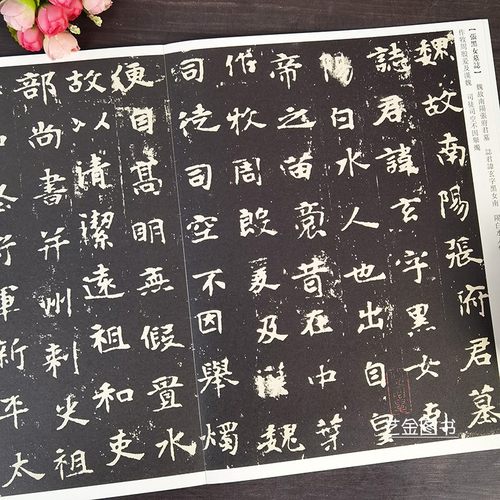 【張黑女墓誌】 魏故南陽張府君墓 誌君諱玄字黑女南 陽白水
作牧周殷爰及漢魏 司徒司空不因舉燭
魏故南陽張府君墓
誌君諱玄字黑女南
陽白水人也出自皇
帝之苗裔昔在中葉
作牧周殷爰及漢魏
司徒司空不因舉燭
便自高明無假置水
故以清潔遠祖和吏
部尚書并州刺史祖
軍新平太
艺金图书